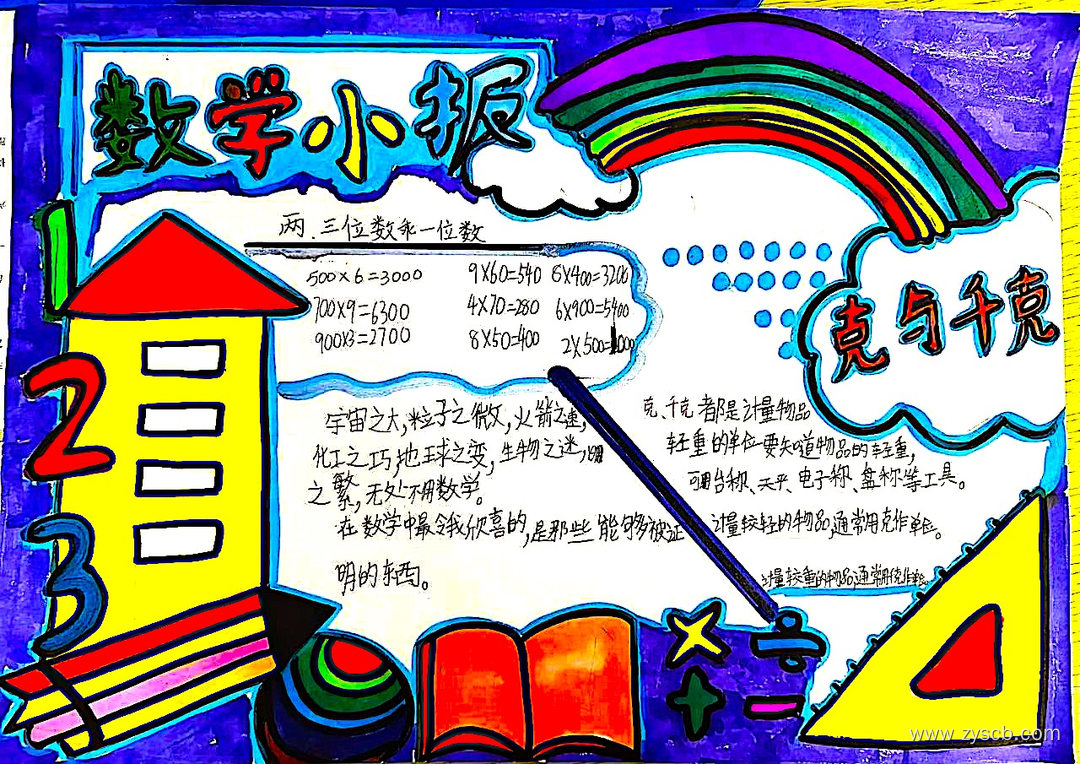 数学小报
两、三位数乘一位数
500×6=3000 9×60=540 8×400=3200
700×9=6300 4×70=280 6×900=5400
900×3=2700 8×50=400 2×500=1000
克与千克
宇宙之大,粒子之微,火箭之速,
化工之巧,地球之变,生物之迷,
之繁,无处不用数学。
在数学中最令我欣喜的,是那些能够被证
明的东西。
克、千克都是计量物品
轻重的单位要知道物品的轻重,
可用台称、天平、电子称、盘称等工具。
计量较轻的物品,通常用克作单位。
计量较重的物品,通常用
1
2
3
× ÷
+ −
www.zyscb.com